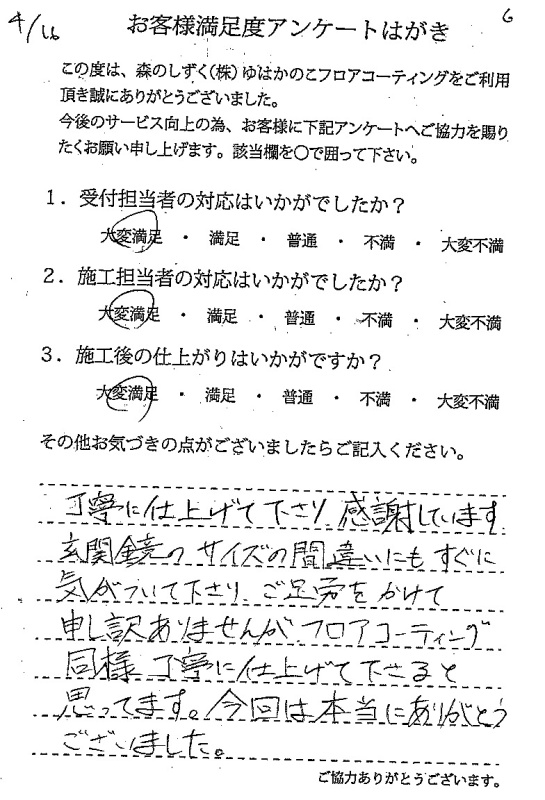 4/16
6
お客様満足度アンケートはがき
この度は、森のしずく(株)ゆはかのこフロアコーティングをご利用
頂き誠にありがとうございました。
今後のサービス向上の為、お客様に下記アンケートへご協力を賜り
たくお願い申し上げます。該当欄を〇で囲って下さい。
1．受付担当者の対応はいかがでしたか？
大変満足 ・ 満足 ・ 普通 ・ 不満 ・ 大変不満
2．施工担当者の対応はいかがでしたか？
大変満足 ・ 満足 ・ 普通 ・ 不満 ・ 大変不満
3．施工後の仕上がりはいかがですか？
大変満足 ・ 満足 ・ 普通 ・ 不満 ・ 大変不満
その他お気づきの点がございましたらご記入ください。
丁寧に仕上げて下さり 感謝しています
玄関鏡の サイズの間違いにも すぐに
気がついて下さり、ご足労を かけて
申し訳ありませんが、フロアコーティング
同様 丁寧に仕上げて下さると
思ってます。今回は本当にありがとう
ございました。
ご協力ありがとうございます。